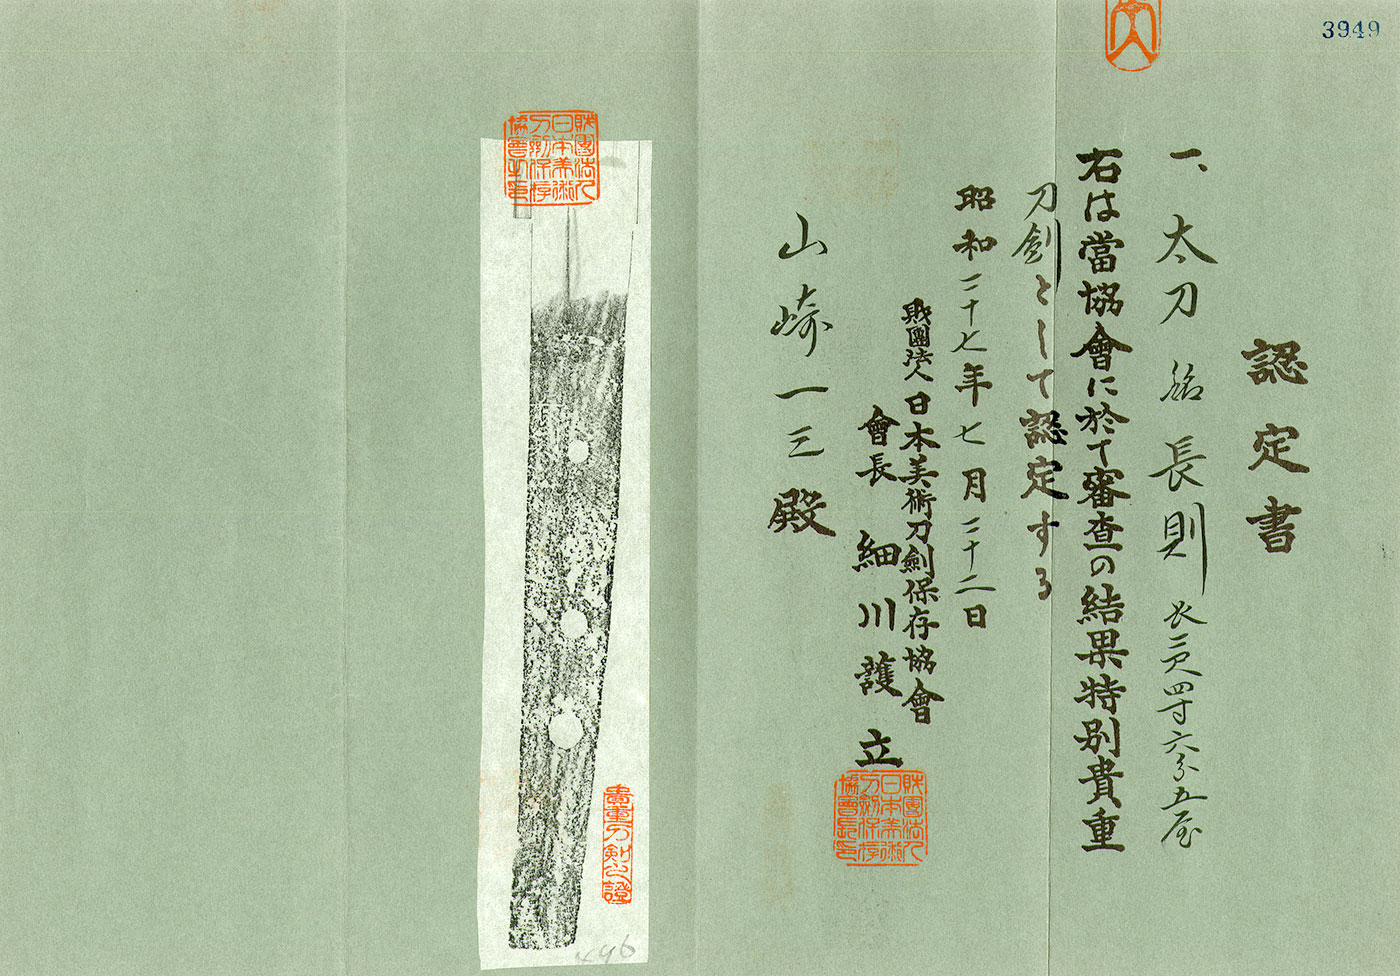 3949
認定書
一、太刀 銘 長則 長二尺四寸六分五厘
右は當協會に於て審査の結果特別貴重
刀劍として認定する
昭和二十七年七月二十二日
財團法人日本美術刀劍保存協會
會長 細川護立
山崎一三殿
財團法人
日本美術
刀劍保存
協會長印
財團法人
日本美術
刀劍保存
協會之印
貴重刀剣之證
496